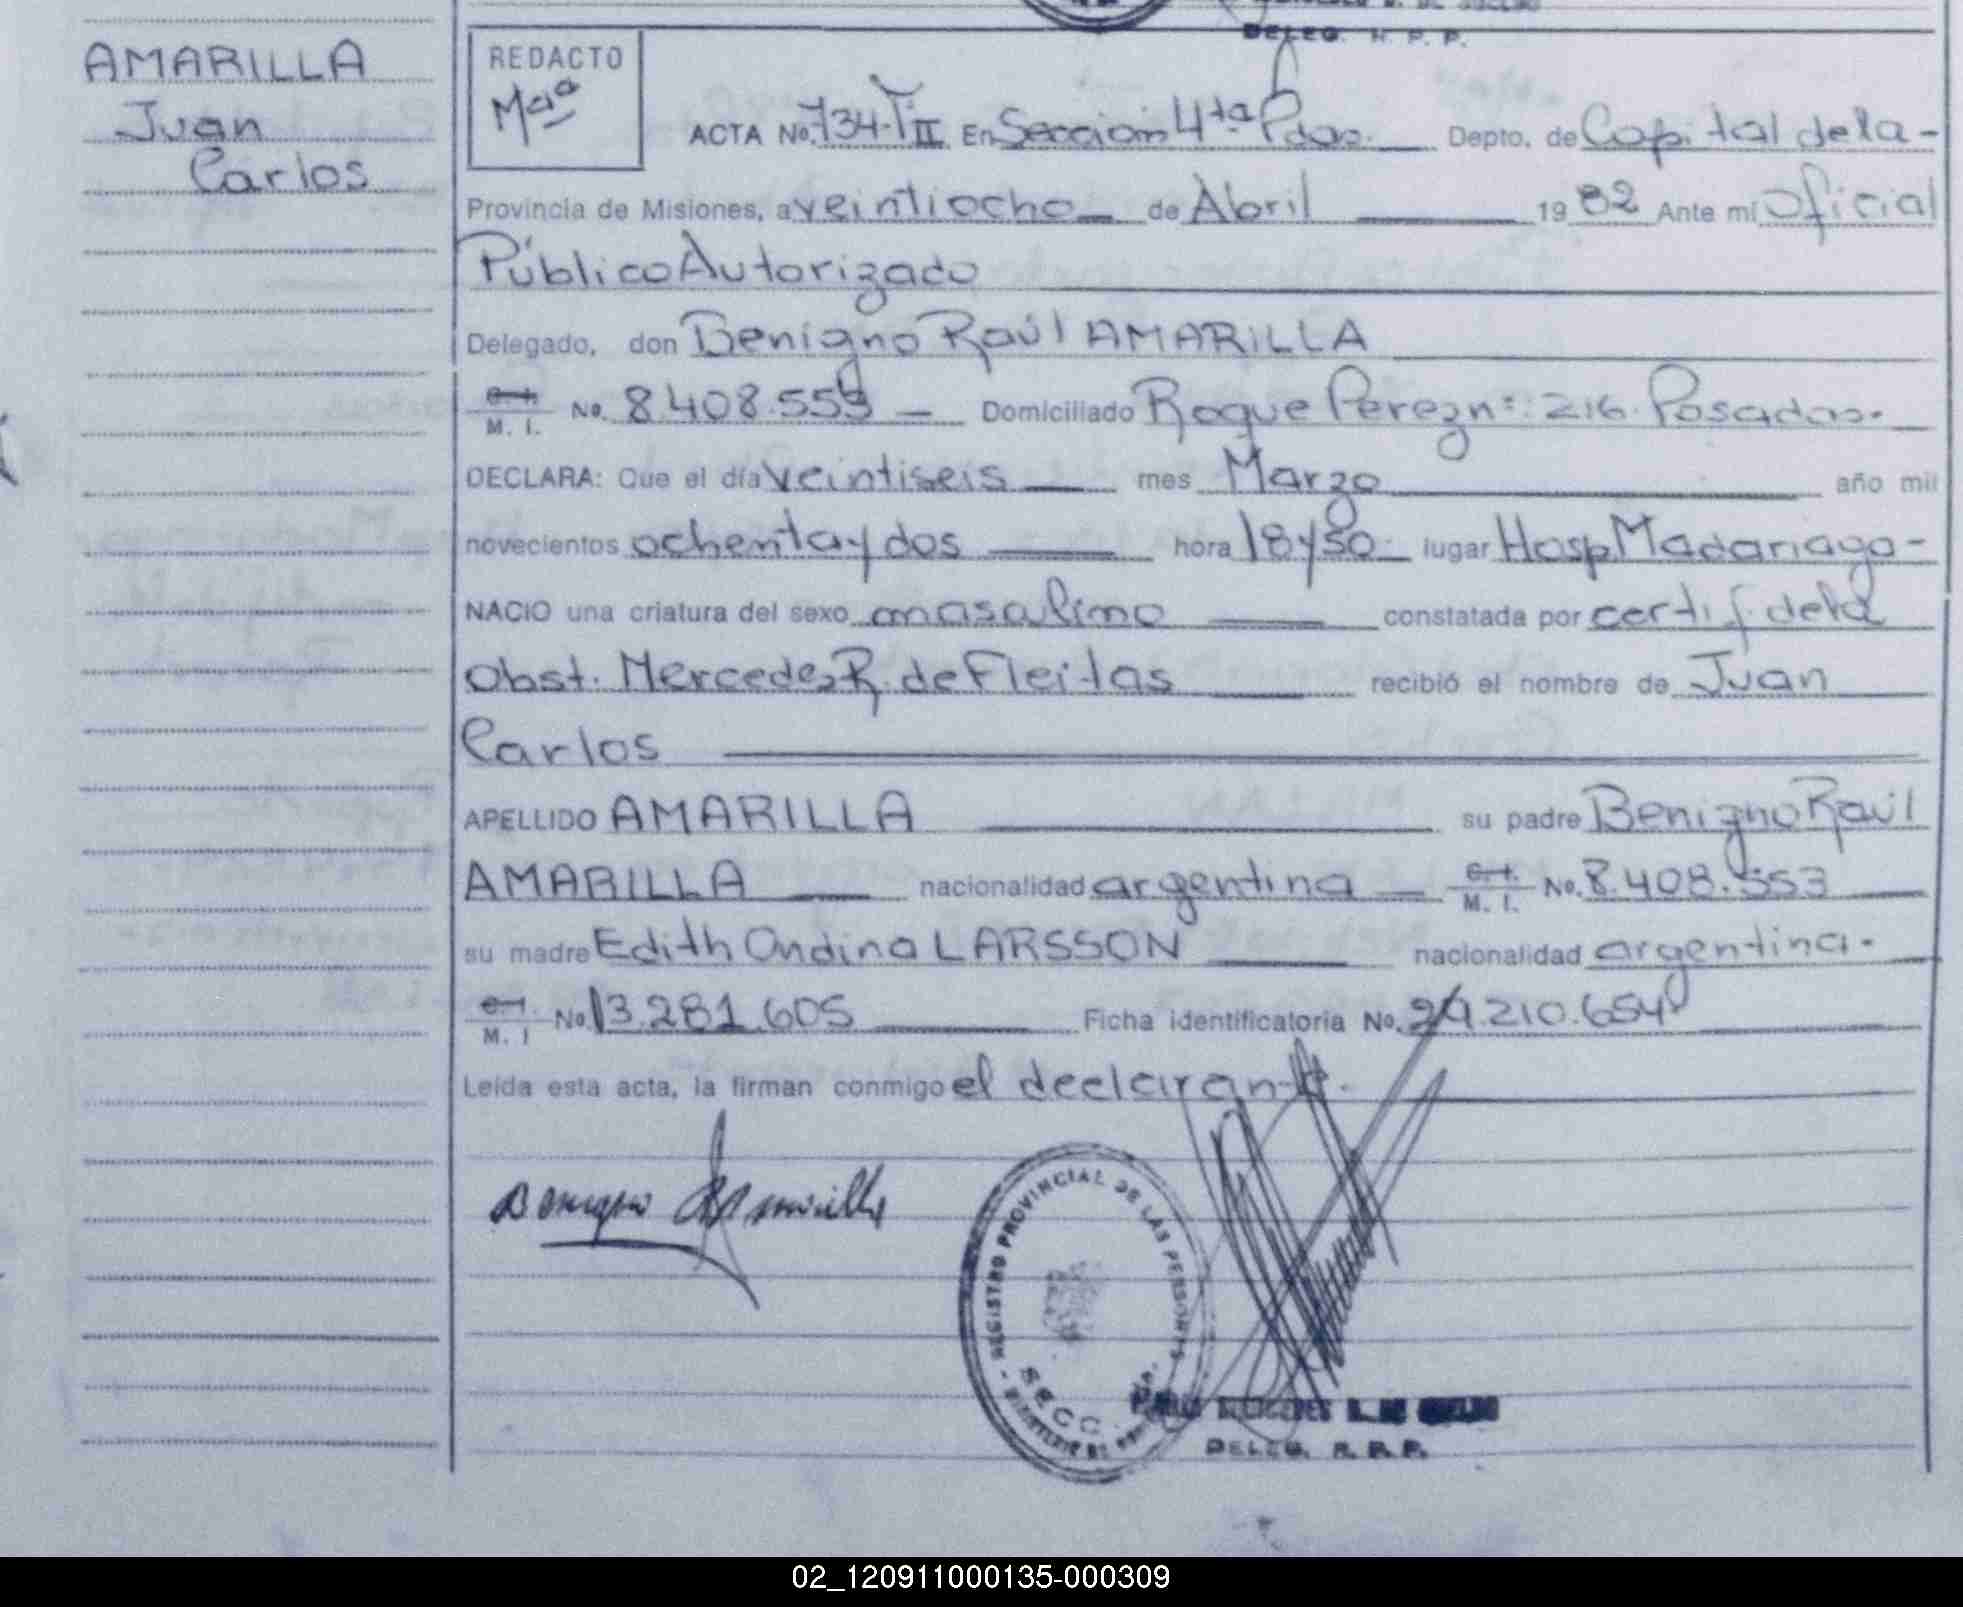 DELEG. R. P. P.
AMARILLA
Juan
Carlos
REDACTO
Mªª
ACTA No. 734-T II En Sección 4ta Pdas. Depto. de Capital de la-
Provincia de Misiones, a veintiocho de Abril 19 82 Ante mí Oficial
Público Autorizado
Delegado, don Benigno Raúl AMARILLA
C.I. M. I. No. 8.408.553 Domiciliado Roque Perez nº: 216. Posadas.
DECLARA: Que el día veintiseis mes Marzo año mil
novecientos ochenta y dos hora 18 y 50 lugar Hosp. Madariaga-
NACIO una criatura del sexo masculino constatada por certif. de la
Obst. Mercedes R. de Fleitas recibió el nombre de Juan
Carlos
APELLIDO AMARILLA su padre Benigno Raúl
AMARILLA nacionalidad argentina C.I. M. I. No. 8.408.553
su madre Edith Ondina LARSSON nacionalidad argentina.
C.I. M. I No. 13.281.605 Ficha identificatoria No. 29.210.654
Leída esta acta, la firman conmigo el declarante.
Benigno R Amarilla
REGISTRO PROVINCIAL DE LAS PERSONAS
SECC.
DELEG. R. P. P.
02_120911000135-000309